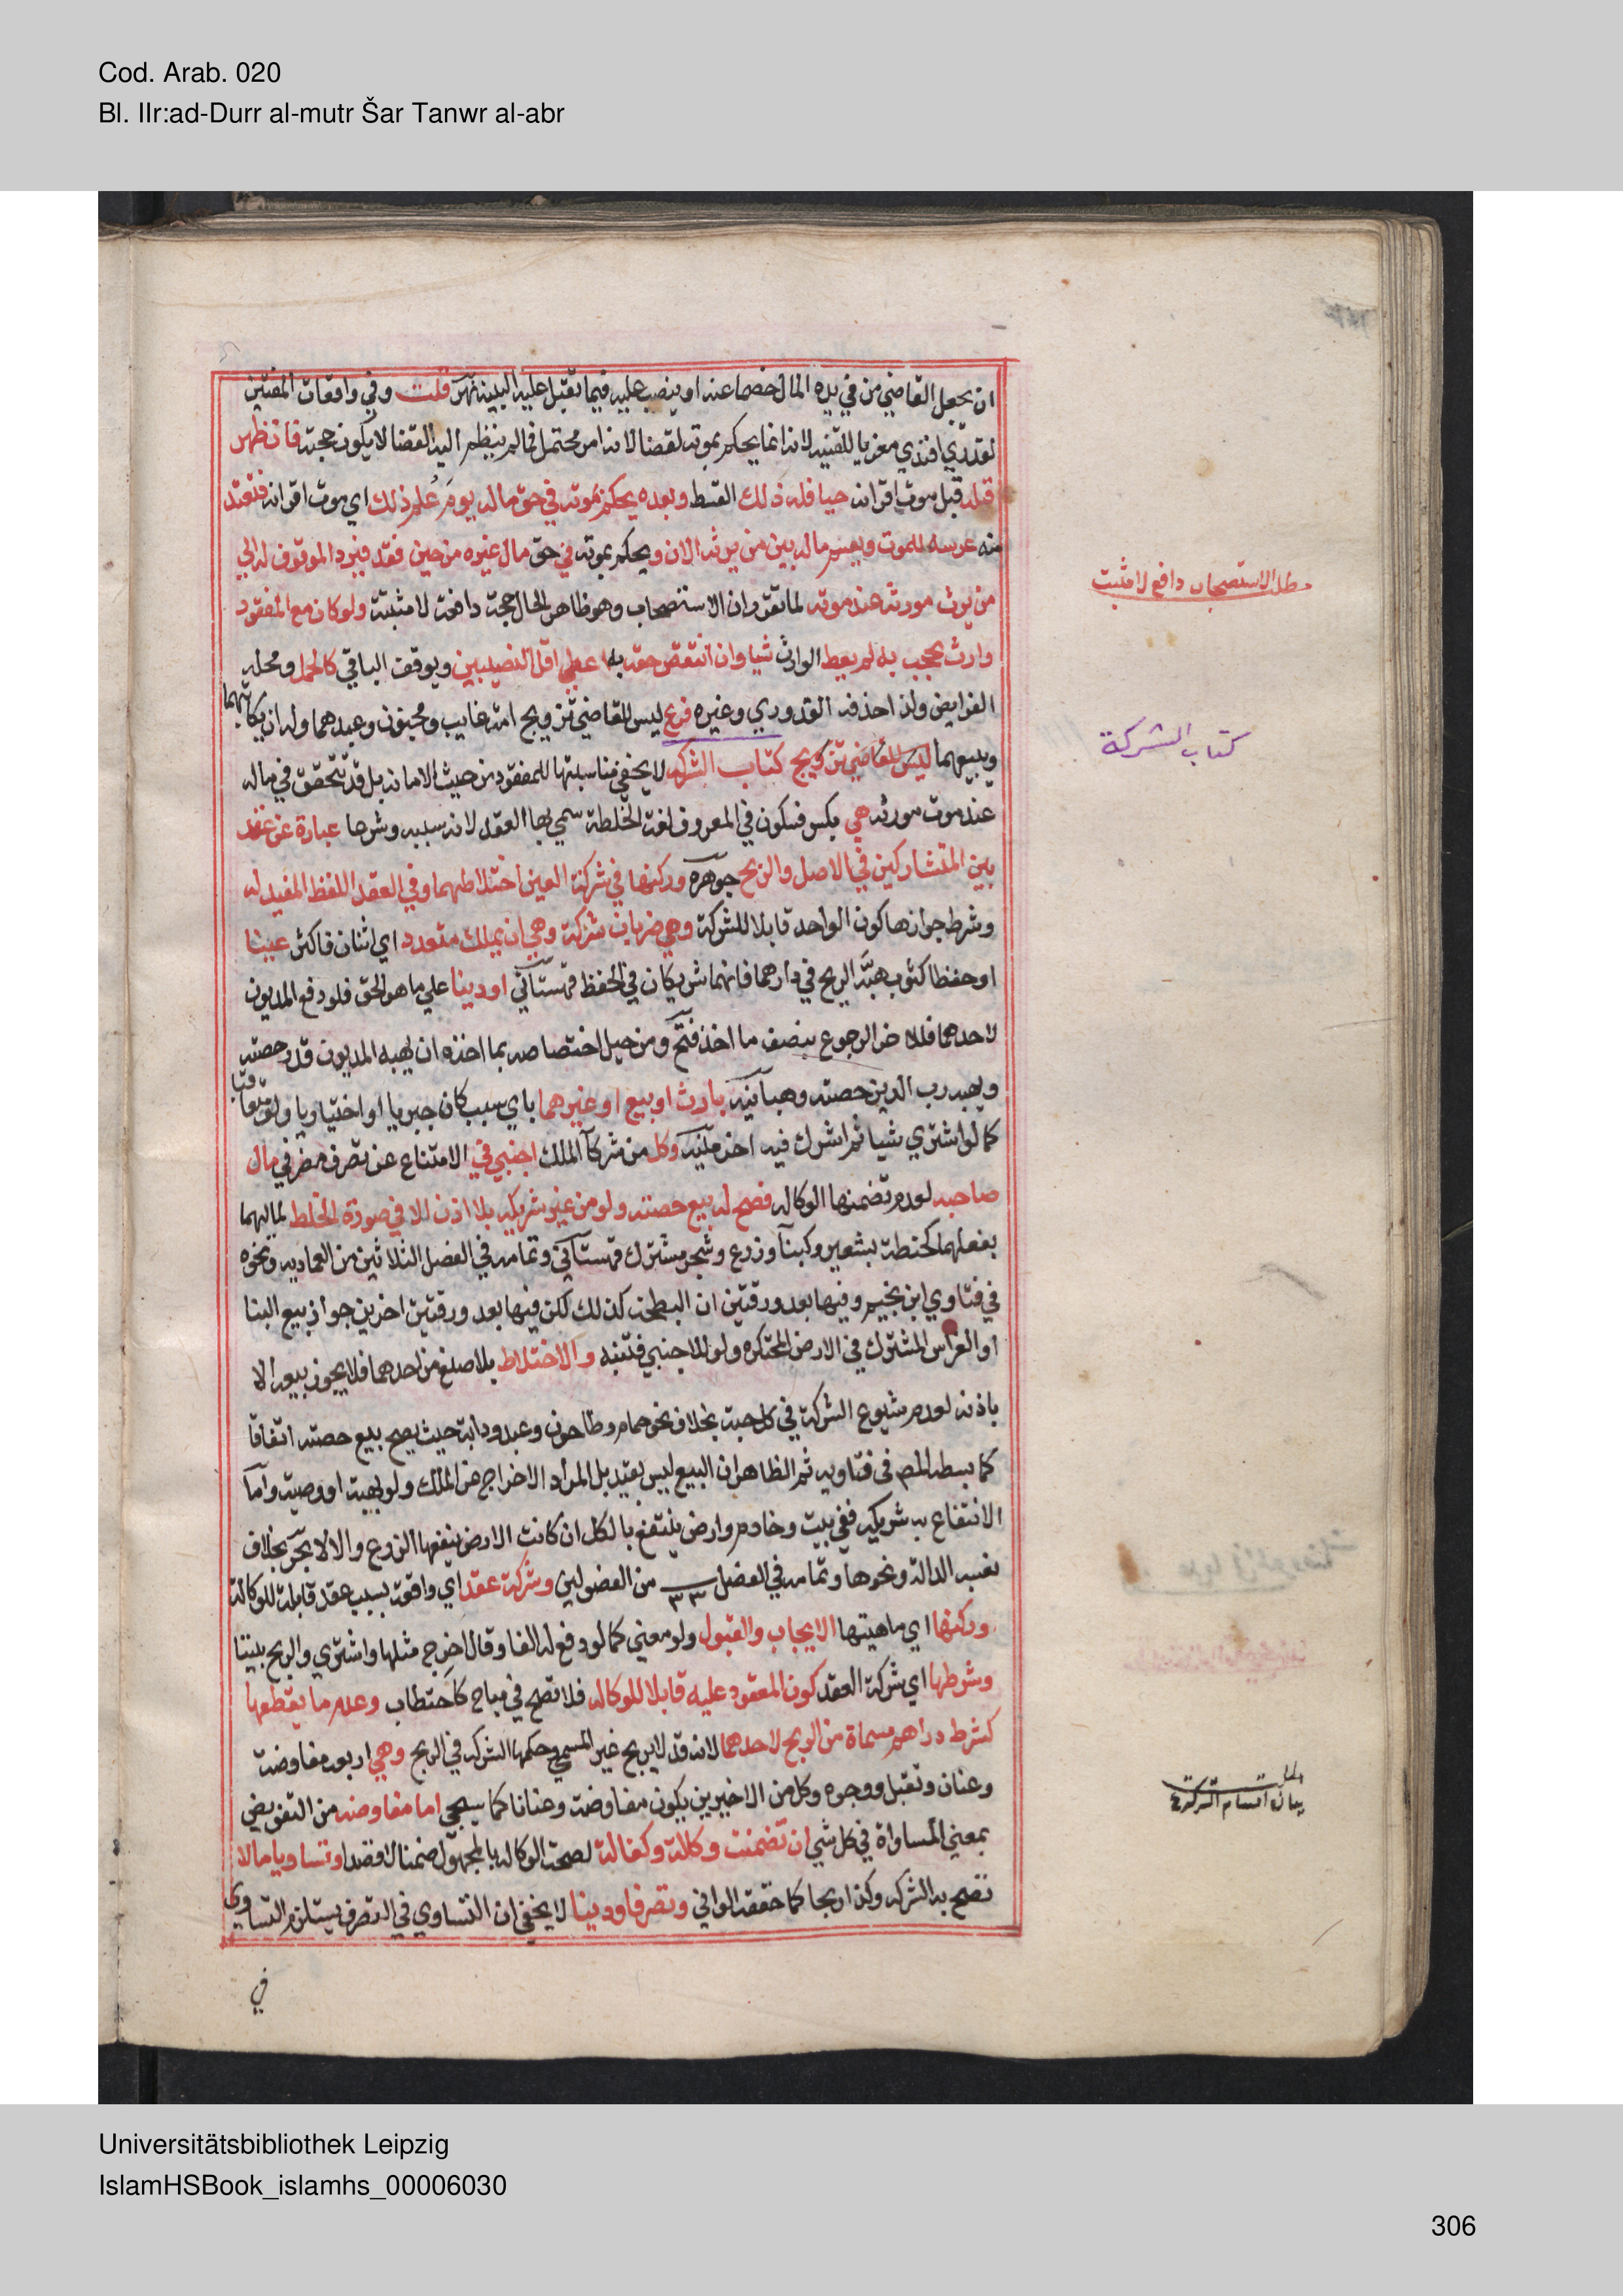 Cod. Arab. 020
Bl. IIr:ad-Durr al-mutr Šar Tanwr al-abr
ان يجعل القاضي من في يده المال خصما عنه او ينصب عليه فيما تقبل عليه البينة نهر قلت وفي واقعات المفتين
لقدري افندي معزيا للقنية لانه انما يحكم بموته لقضا لانه امر محتمل فما لم ينظم اليه القضا لا يكون حجة فان ظهر
قبله قبل موت اقرانه حيا فله ذلك القسط وبعده يحكم بموته في حق ماله يوم علم ذلك اي موت اقرانه فتعتد
منه عرسه للموت ويقسم ماله بين من يرثه الان ويحكم بموته في حق مال غيره من حين فقد فيرد الموقوف له الي
من يرث مورثه عند موته لما تقرر ان الاستصحاب وهو ظاهر الحال حجة دافعة لا مثبتة ولو كان مع المفقود
وارث يحجب به لم يعط الوارث شيا وان انتقص حقه به اعطي اقل النصيبين ويوقف الباقي كالحمل ومحله
الفرايض ولذا حذفه القدوري وغيره فرع ليس للقاضي تزويج امة غايب ومجنون وعبدهما وله ان يكاتبهما
ويبيعهما ليس للقاضي تزويج كتاب الشركه لا يخفي مناسبتها للمفقود من حيث الامانة بل قد تحقق في ماله
عند موت مورثه هي بكسر فسكون في المعروف لغة الخلطة سمي بها العقد لانه سببه وشرعا عبارة عن عقد
بين المتشاركين في الاصل والربح جوهره وركنها في شركة العين اختلاطهما وفي العقد اللفظ المفيد له
وشرط جوازها كون الواحد قابلا للشركة وهي ضربان شركة وهي ان يملك متعدد اي اثنان فاكثر عينا
او حفظا كثوب هبة الريح في دارهما فانهما شريكان في الحفظ قهستاني او دينا علي ما هو الحق فلو دفع المديون
لاحدهما فللاخر الرجوع بنصف ما اخذ فتح ومن حيل اختصاصه بما اخذه ان يهبه المديون قدر حصته
ويهبه رب الدين حصته وهبانيه بارث او بيع او غيرهما باي سبب كان جبريا او اختياريا ولو متعاقبا
كما لو اشتري شيا ثم اشرك فيه اخر منيه وكل من شركآ الملك اجنبي في الامتناع عن تصرف مضر في مال
صاحبه لعدم تضمنها الوكاله فصح له بيع حصته ولو من غير شريكه بلا اذن الا في صورة الخلط لماليهما
بفعلهما كحنطة بشعير وكبنآ وزرع وشجر مشترك قهستاني وتمامه في الفصل الثلاثين من العماديه ونحوه
في فتاوي ابن نجيم وفيها بعد ورقتين ان البطيخ كذلك لكن فيها بعد ورقتين اخرين جواز بيع البنا
او الغراس المشترك في الارض المحتكره ولو للاجنبي فتنبه والاختلاط بلا صنع من احدهما فلا يجوز بيعه الا
باذنه لعدم شيوع الشركة في كل حبة بخلاف نحو حمام وطاحون وعبد ودابة حيث يصح بيع حصته اتفاقا
كما بسطه المص في فتاويه ثم الظاهر ان البيع ليس بقيد بل المراد الاخراج عن الملك ولو بهبة او وصية واما
الانتفاع به شريكه ففي بيت وخادم وارض ينتفع بالكل ان كانت الارض ينفعها الزرع والا لا بحر بخلاف
بغيب الدالة ونحوها وتمامه في الفصل ٣٣ من الفصولين وشركة عقد اي واقعة بسبب عقد قابلة للوكالة
وركنها اي ماهيتها الايجاب والقبول ولو معني كما لو دفع له الفا وقال اخرج مثلها واشتري والربح بيننا
وشرطها اي شركة العقد كون المعقود عليه قابلا للوكاله فلا تصح في مباح كاحتطاب وعدم ما يقطعها
كشرط دراهم مسماة من الربح لاحدهما لانه قد لا يربح غير المسمي وحكمها الشركه في الربح وهي اربعه مفاوضة
وعنان وتقبل ووجوه وكل من الاخيرين يكون مفاوضة وعنانا كما سيجي اما مفاوضه من التفويض
بمعني المساواة في كل شي ان تضمنت وكالة وكفالة لصحة الوكاله بالمجهول ضمنا لا قصدا وتساويا مالا
تصح به الشركه وكذا ربحا كما حققه الواني وتصرفا ودينا لا يخفي ان التساوي في التصرف يستلزم التساوي
في
مطلب الاستصحاب دافع لا مثبت
كتاب الشركة
مطلب
بيان اقسام الشركة
Universitätsbibliothek Leipzig
IslamHSBook_islamhs_00006030
306